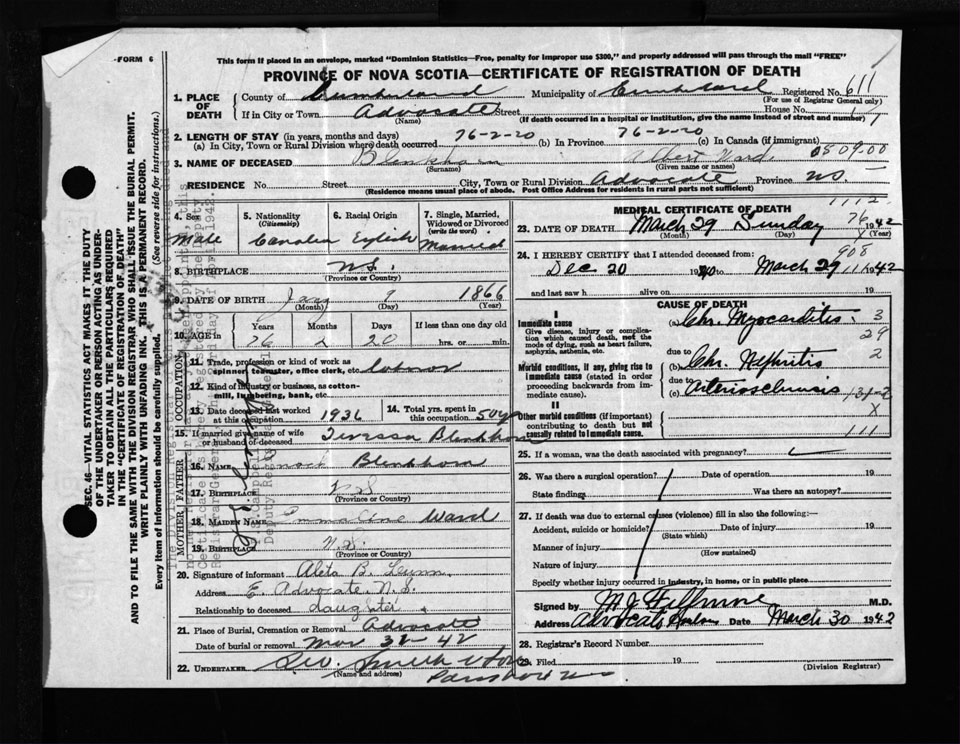 FORM 6
This form if placed in an envelope, marked "Dominion Statistics—Free, penalty for improper use $300," and properly addressed will pass through the mail "FREE"
PROVINCE OF NOVA SCOTIA—CERTIFICATE OF REGISTRATION OF DEATH
1. PLACE OF DEATH County of Cumberland Municipality of Cumberland Registered No. 611
(For use of Registrar General only)
If in City or Town Advocate Street House No.
(Name) (If death occurred in a hospital or institution, give the name instead of street and number)
2. LENGTH OF STAY (in years, months and days)
(a) In City, Town or Rural Division where death occurred 76-2-20 (b) In Province 76-2-20 (c) In Canada (if immigrant)
3. NAME OF DECEASED Blenkhorn Albert Ward 0509.00
(Surname) (Given name or names)
RESIDENCE No. Street City, Town or Rural Division Advocate Province NS
(Residence means usual place of abode. Post Office Address for residents in rural parts not sufficient)
4. Sex Male
5. Nationality (Citizenship) Canadian
6. Racial Origin English
7. Single, Married, Widowed or Divorced (write the word) Married
8. BIRTHPLACE N.S.
(Province or Country)
9. DATE OF BIRTH Jany 9 1866
(Month) (Day) (Year)
10. AGE in Years Months Days If less than one day old
76 2 20 hrs. or min.
OCCUPATION
11. Trade, profession or kind of work as spinner, teamster, office clerk, etc.
12. Kind of industry or business, as cotton-mill, lumbering, bank, etc.
13. Date deceased last worked at this occupation 1936
14. Total yrs. spent in this occupation 50 yrs
15. If married give name of wife or husband of deceased Blenkhorn
FATHER
16. NAME Blenkhorn
17. BIRTHPLACE N.S
(Province or Country)
MOTHER
18. MAIDEN NAME Emmaline Ward
19. BIRTHPLACE N.S.
(Province or Country)
20. Signature of informant Aleta B.
Address E. Advocate, N.S.
Relationship to deceased daughter
21. Place of Burial, Cremation or Removal Advocate
Date of burial or removal Mar 31-42
22. UNDERTAKER Geo. Smith
(Name and address)
1112
MEDICAL CERTIFICATE OF DEATH
76
23. DATE OF DEATH March 29 Sunday 1942
(Month) (Day) (Year)
908
24. I HEREBY CERTIFY that I attended deceased from:
Dec 20 1940 to March 29 1942
and last saw h alive on 19
CAUSE OF DEATH
I
Immediate cause
Give disease, injury or complication which caused death, not the mode of dying, such as heart failure, asphyxia, asthenia, etc.
(a) Chr. Myocarditis 3
29
Morbid conditions, if any, giving rise to immediate cause (stated in order proceeding backwards from immediate cause).
due to
(b) Chr. Nephritis 2
due to
(c) Arteriosclerosis 131-2
X
II
Other morbid conditions (if important) contributing to death but not causally related to immediate cause.
111
25. If a woman, was the death associated with pregnancy?
26. Was there a surgical operation? Date of operation 19
State findings Was there an autopsy?
27. If death was due to external causes (violence) fill in also the following:—
Accident, suicide or homicide? Date of injury 19
(State which)
Manner of injury
(How sustained)
Nature of injury
Specify whether injury occurred in industry, in home, or in public place
Signed by M.D.
Address Advocate Harbour Date March 30 1942
28. Registrar's Record Number
29. Filed 19
(Division Registrar)
SEC. 46—VITAL STATISTICS ACT MAKES IT THE DUTY
OF THE UNDERTAKER OR PERSON ACTING AS UNDER-
TAKER TO OBTAIN ALL THE PARTICULARS REQUIRED
IN THE "CERTIFICATE OF REGISTRATION OF DEATH"
AND TO FILE THE SAME WITH THE DIVISION REGISTRAR WHO SHALL ISSUE THE BURIAL PERMIT.
WRITE PLAINLY WITH UNFADING INK. THIS IS A PERMANENT RECORD.
Every item of Information should be carefully supplied. (See reverse side for instructions.)